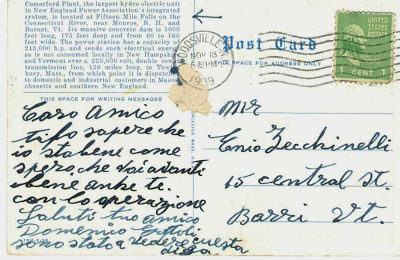 Comerford Plant, the largest hydro electric unit
in New England Power Association's integrated
system, is located at Fifteen Mile Falls on the
Connecticut River, near Monroe, N. H. and
Barnet, Vt. Its massive concrete dam is 1600
feet long, 175 feet deep and from 60 to 160
feet wide. The power station has a capacity of
215,000 h.p. and sends such electrical energy
as is not consumed locally in New Hampshire
and Vermont over a 220,000 volt, double tower
transmission line, 126 miles long, to Tewks-
bury, Mass., from which point it is distributed
to domestic and industrial customers in Massa-
chusetts and southern New England.
THIS SPACE FOR WRITING MESSAGES
Caro Amico
ti fo sapere che
io sta bene come
spero che vai avanti
bene anke te.
con lo sperazione
Saluti tuo amico
Domenico
sono stato a vedere cuesta
diga
WOODSVILLE
NOV 13
PM
1939
Post Card
THIS SPACE FOR ADDRESS ONLY
UNITED STATES
POSTAGE
CENT 1
Mr
Enio Zecchinelli
15 central st.
Barri Vt.